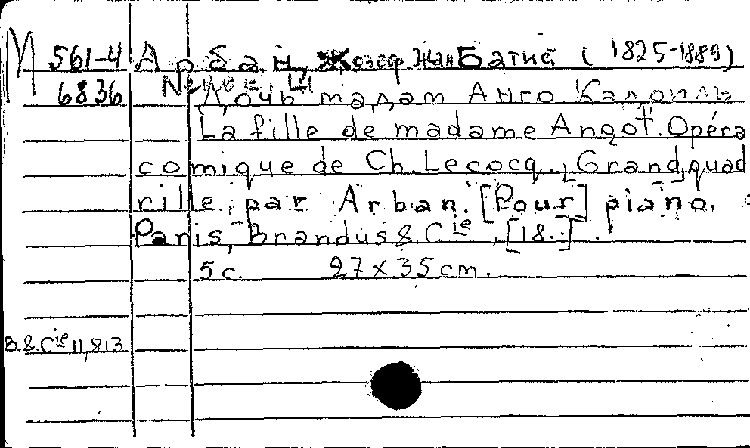 М 561-4 Арбан, Жозеф Жан Батист (1825-1889)
6836 Дочь мадам Анго Кадриль
La fille de madame Angot. Opéra
comique de Ch. Lecocq., Grand quad
rille, par Arban. [Pour] piano.
Paris, Brandus & Cie, [18..].
5 c. 27 x 35 cm.
B. & Cie 11,813